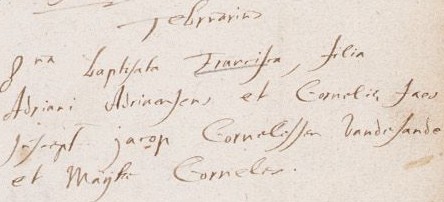 Februarius
8na baptisata Francisca, filia
Adriani Adriaensens et Cornelie Jaes
suscept jacop Cornelissen Vande sande
et Mayke Cornelis.